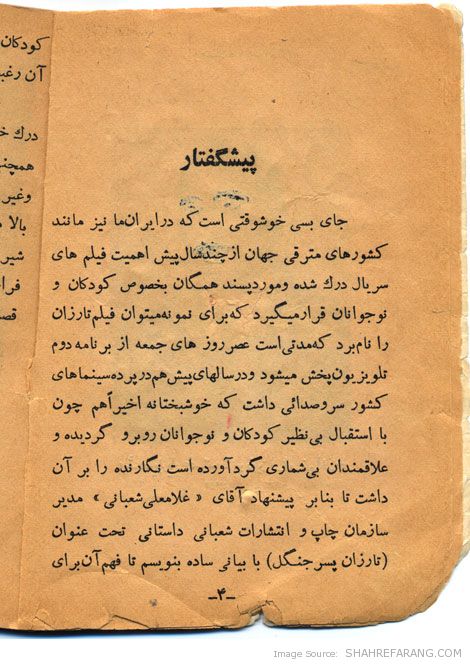 پیشگفتار
جای بسی خوشوقتی است که در ایران ما نیز مانند
کشورهای مترقی جهان از چندسال پیش اهمیت فیلم های
سریال درك شده و مورد پسند همگان بخصوص کودکان و
نوجوانان قرار میگیرد که برای نمونه میتوان فیلم تارزان
را نام برد که مدتی است عصر روز های جمعه از برنامه دوم
تلویزیون پخش میشود و در سالهای پیش هم در پرده سینماهای
کشور سر و صدائی داشت که خوشبختانه اخیراً هم چون
با استقبال بی نظیر کودکان و نوجوانان روبرو گردیده و
علاقمندان بی شماری گرد آورده است نگارنده را بر آن
داشت تا بنابر پیشنهاد آقای « غلامعلی شعبانی » مدیر
سازمان چاپ و انتشارات شعبانی داستانی تحت عنوان
(تارزان پسر جنگل) با بیانی ساده بنویسم تا فهم آن برای
-۴-
کودکان
آن رغب
درك
همچن
وغیر
بالا
شیر
فرا
قص
Image Source: SHAHREFARANG.COM